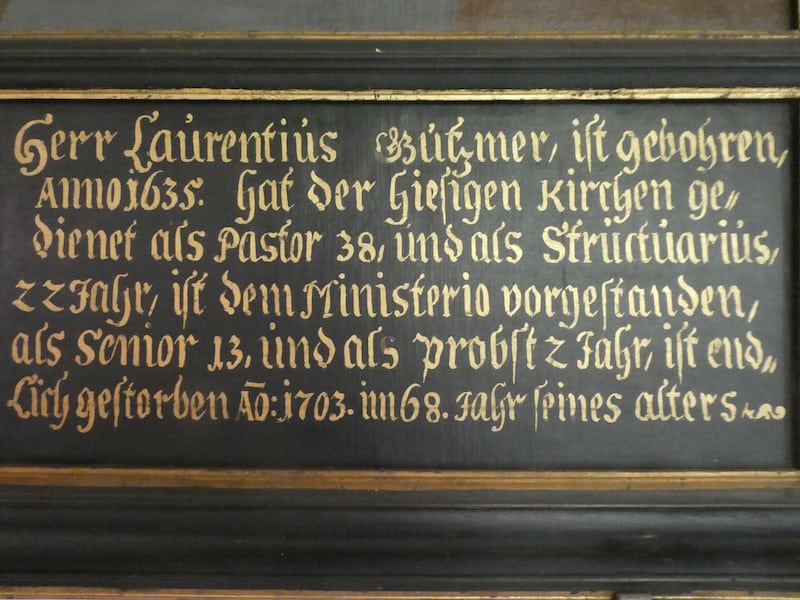 Herr Laurentius Gützmer, ist gebohren,
Anno 1635. hat der hiesigen Kirchen ge„
dienet als Pastor 38, und als Structuarius,
22 Jahr, ist dem Ministerio vorgestanden,
als Senior 13, und als probst 2 Jahr, ist end„
lich gestorben Aō: 1703. im 68. Jahr seines alters